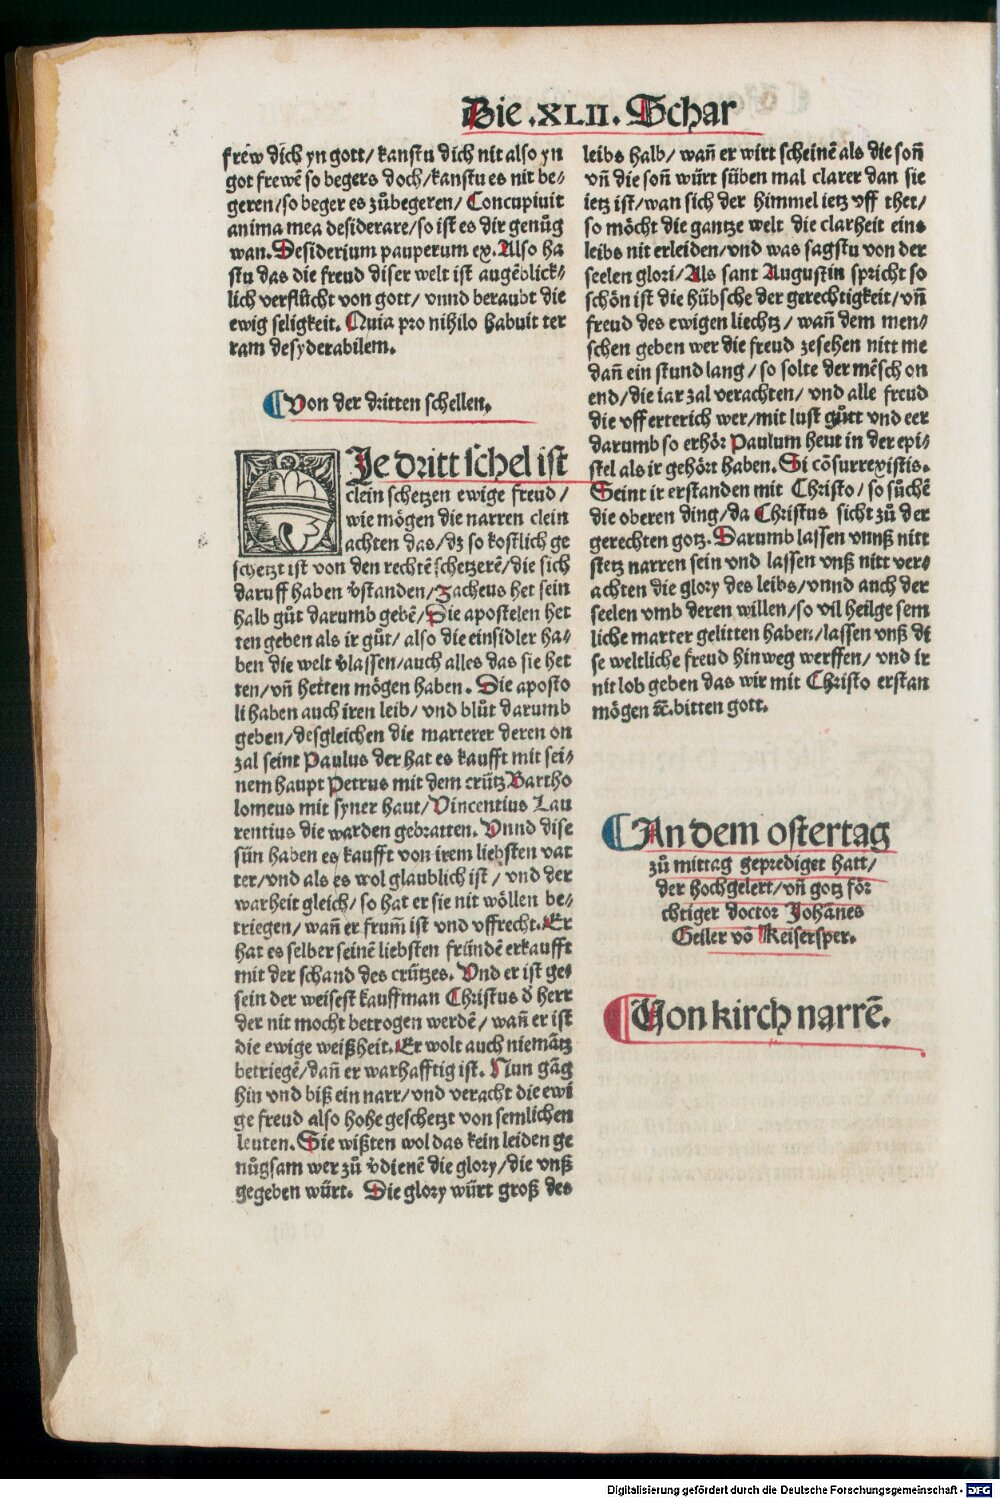 Die .XLII. Schar
frëw dich yn gott/ kanstu dich nit also yn
got frewē so begers doch/kanstu es nit be-
geren/so beger es zůbegeren/ Concupiuit
anima mea desiderare/so ist es dir genůg
wan. Desiderium pauperum ex. Also ha
stu das die freud diser welt ist augēblick-
lich verflůcht von gott/ vnnd beraubt die
ewig seligkeit. Quia pro nihilo habuit ter
ram desyderabilem.
Von der dritten schellen.
Je dritt schel ist
clein schetzen ewige freud/
wie mögen die narren clein
achten das/dz so kostlich ge
schetzt ist von den rechtē schetzerē/die sich
daruff haben v̄standen/Zacheus het sein
halb gůt darumb gebē/Die apostelen het
ten geben als ir gůt/ also die einsidler ha-
ben die welt v̄lassen/auch alles das sie het
ten/vñ hetten mögen haben. Die aposto
li haben auch iren leib/ vnd blůt darumb
geben/desgleichen die marterer deren on
zal seint Paulus der hat es kaufft mit sei-
nem haupt Petrus mit dem crütz Bartho
lomeus mit syner haut/Vincentius Lau
rentius die warden gebratten. Vnnd dise
sün haben es kaufft von irem liebsten vat
ter/vnd als es wol glaublich ist/ vnd der
warheit gleich/ so hat er sie nit wöllen be-
triegen/ wañ er frum̄ ist vnd vffrecht. Er
hat es selber seinē liebsten fründē erkaufft
mit der schand des crützes. Vnd er ist ge-
sein der weisest kauffman Christus d̄ herr
der nit mocht betrogen werdē/ wañ er ist
die ewige weißheit. Er wolt auch niemātz
betriegē/dañ er warhafftig ist. Nun gāg
hin vnd biß ein narr/vnd veracht die ewi
ge freud also hohe geschetzt von semlichen
leuten. Sie wißten wol das kein leiden ge
nůgsam wer zů v̄dienē die glory/die vnß
gegeben würt. Die glory würt groß des
leibs halb/ wañ er wirt scheinē als die soñ
vñ die soñ würt süben mal clarer dan sie
ietz ist/wan sich der himmel ietz vff thet/
so möcht die gantze welt die clarheit eins
leibs nit erleiden/vnd was sagstu von der
seelen glori/Als sant Augustin spricht so
schön ist die hübsche der gerechtigkeit/vñ
freud des ewigen liechtz/ wañ dem men-
schen geben wer die freud zesehen nitt me
dañ ein stund lang/ so solte der mēsch on
end/die iar zal verachten/ vnd alle freud
die vff erterich wer/mit lust gůtt vnd eer
darumb so erhör Paulum heut in der epi-
stel als ir gehört haben. Si cōsurrexistis.
Seint ir erstanden mit Christo/ so sůchē
die oberen ding/da Christus sicht zů der
gerechten gotz. Darumb lassen vnnß nitt
stetz narren sein vnd lassen vnß nitt ver-
achten die glory des leibs/vnnd auch der
seelen vmb deren willen/so vil heilge sem
liche marter gelitten haben/lassen vnß di
se weltliche freud hinweg werffen/ vnd ir
nit lob geben das wir mit Christo erstan
mögen ꝛc̄. bitten gott.
An dem ostertag
zů mittag geprediget hatt/
der hochgelert/vñ gotzför
chtiger doctor Johānes
Geiler vō Keisersper.
Von kirch narrē.
Digitalisierung gefördert durch die Deutsche Forschungsgemeinschaft - DFG